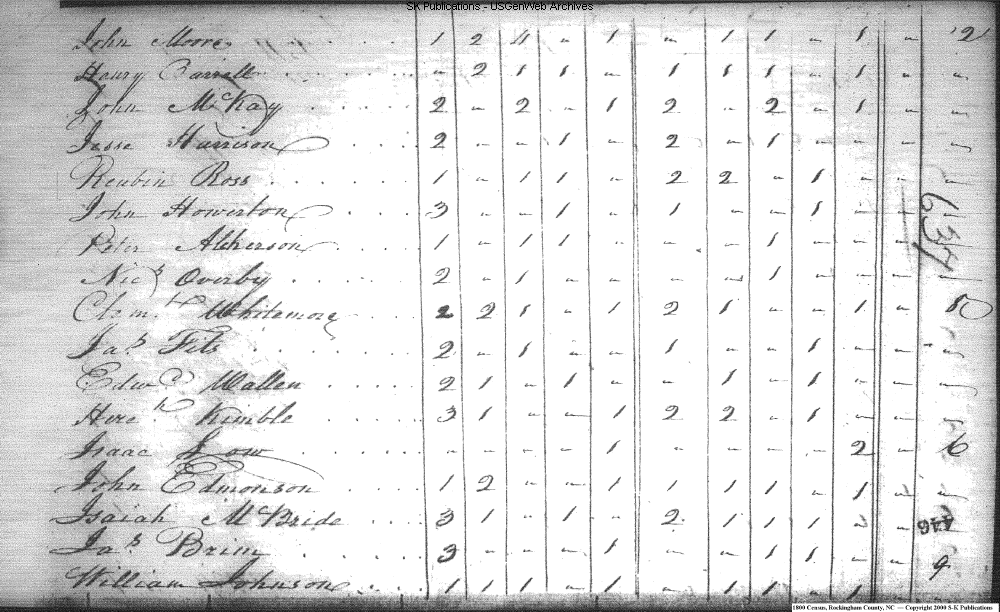 SK Publications - USGenWeb Archives
John Moore 1 2 4 - 1 - 1 1 - 1 - 2
Henry Carrell - 2 1 1 - 1 1 1 - 1 - -
John McKay 2 - 2 - 1 2 - 2 - 1 - -
Jesse Harrison 2 - - 1 - 2 - 1 - - - -
Reubin Ross 1 - 1 1 - 2 2 - 1 - - -
John Howerton 3 - - 1 - 1 - - 1 - - -
Peter Atkerson 1 - 1 1 - - - 1 - - - -
Nics Overby 2 - 1 - - - - 1 - - - -
Clemt Whitemore 2 2 1 - 1 2 1 - - 1 - 10
Jas Fits 2 - 1 - - 1 - - 1 - - -
Edwd Wallen 2 1 - 1 - - 1 - 1 - - -
Kimble 3 1 - - 1 2 2 - 1 - - -
Isaac Low - - - - 1 - - - - 2 - 6
John Edmonson 1 2 - - 1 1 1 1 - 1 - -
Isaiah McBride 3 1 - 1 - 2 1 1 1 - - -
Jas Brim 3 - - - 1 - - 1 1 - - 9
William Johnson 1 1 1 - 1 - 1 1 - 1 - -
637
446
1800 Census, Rockingham County, NC — Copyright 2000 S-K Publications